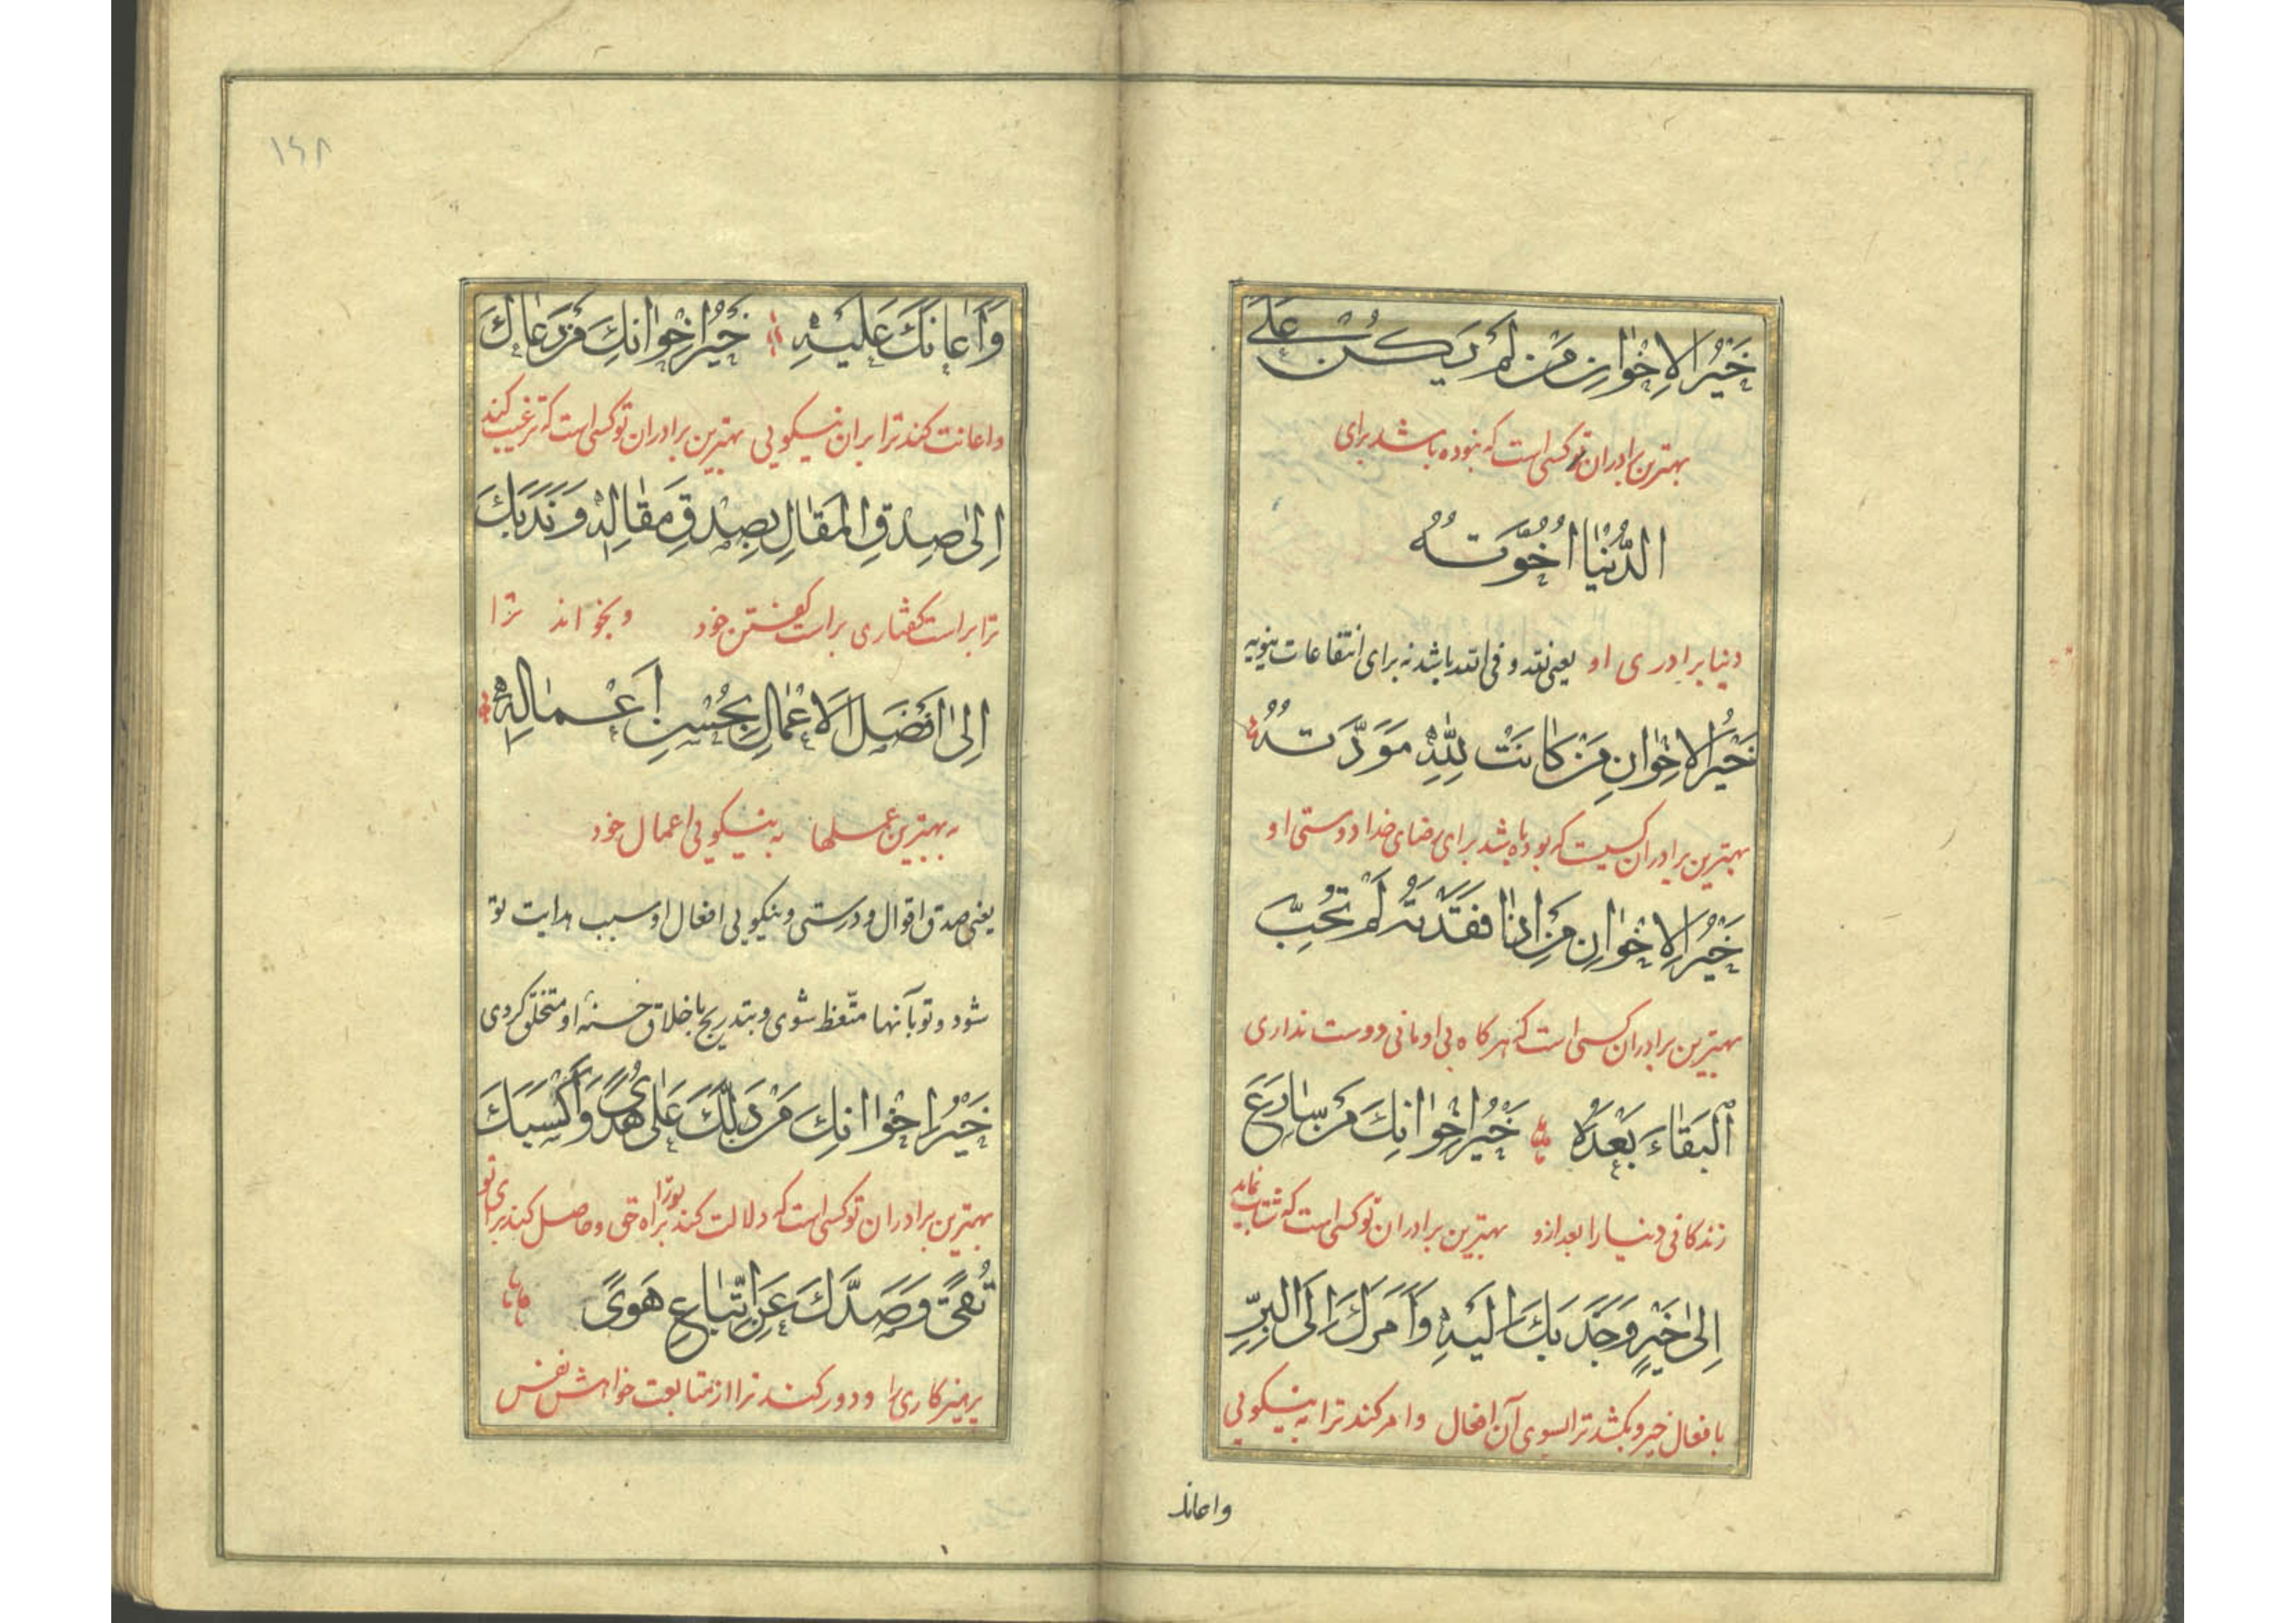 خَيْرُ الْاِخْوَانِ مَنْ لَمْ يَكُنْ عَلَى
بهترین برادران تو کسی است که نبوده باشد برای
الدُّنْيَا اُخُوَّتُهُ
دنیا برادری او یعنی باشد نه برای انتفاعات
خَيْرُ الْاِخْوَانِ مَنْ كَانَتْ لِلّٰهِ مَوَدَّتُهُ
بهترین برادران کسیست که بوده باشد برای رضای خدا دوستی او
خَيْرُ الْاِخْوَانِ مَنْ اِذَا فَقَدْتَهُ لَمْ تُحِبَّ
بهترین برادران کسی است که هر کاه بی او مانی دوست نداری
الْبَقَاءَ بَعْدَهُ خَيْرُ اِخْوَانِكَ مَنْ سَارَعَ
زندکانی دنیا را بعد ازو بهترین برادران تو کسی است که شتاب نماید
اِلٰى خَيْرٍ وَجَذَبَكَ اِلَيْهِ وَاَمَرَكَ اِلَى الْبِرِّ
بافعال خیر و بکشد ترا بسوی آن افعال و امر کند ترا به نیکویی
واعانک
۱۶۸
وَاَعَانَكَ عَلَيْهِ خَيْرُ اِخْوَانِكَ مَنْ دَعَاكَ
و اعانت کند ترا بران نیکویی بهترین برادران تو کسی است که ترغیب کند
اِلٰى صِدْقِ الْمَقَالِ بِصِدْقِ مَقَالِهِ وَنَدَبَكَ
ترا براست کفتاری براست کفتن خود و بخواند ترا
اِلٰى اَفْضَلِ الْاَعْمَالِ بِحُسْنِ اَعْمَالِهِ
به بهترین عملها به نیکویی اعمال خود
یعنی صدق اقوال و درستی و نیکویی افعال او سبب هدایت تو
شود و تو بآنها متّعظ شوی و بتدریج باخلاق حسنهٔ او متخلّق کردی
خَيْرُ اِخْوَانِكَ مَنْ دَلَّكَ عَلٰى هُدًى وَاَكْسَبَكَ
بهترین برادران تو کسی است که دلالت کند ترا براه حق و حاصل کند برای تو
تُقًى وَصَدَّكَ عَنِ اتِّبَاعِ هَوًى
پرهیزکاری را و دور کند ترا از متابعت خواهش نفس